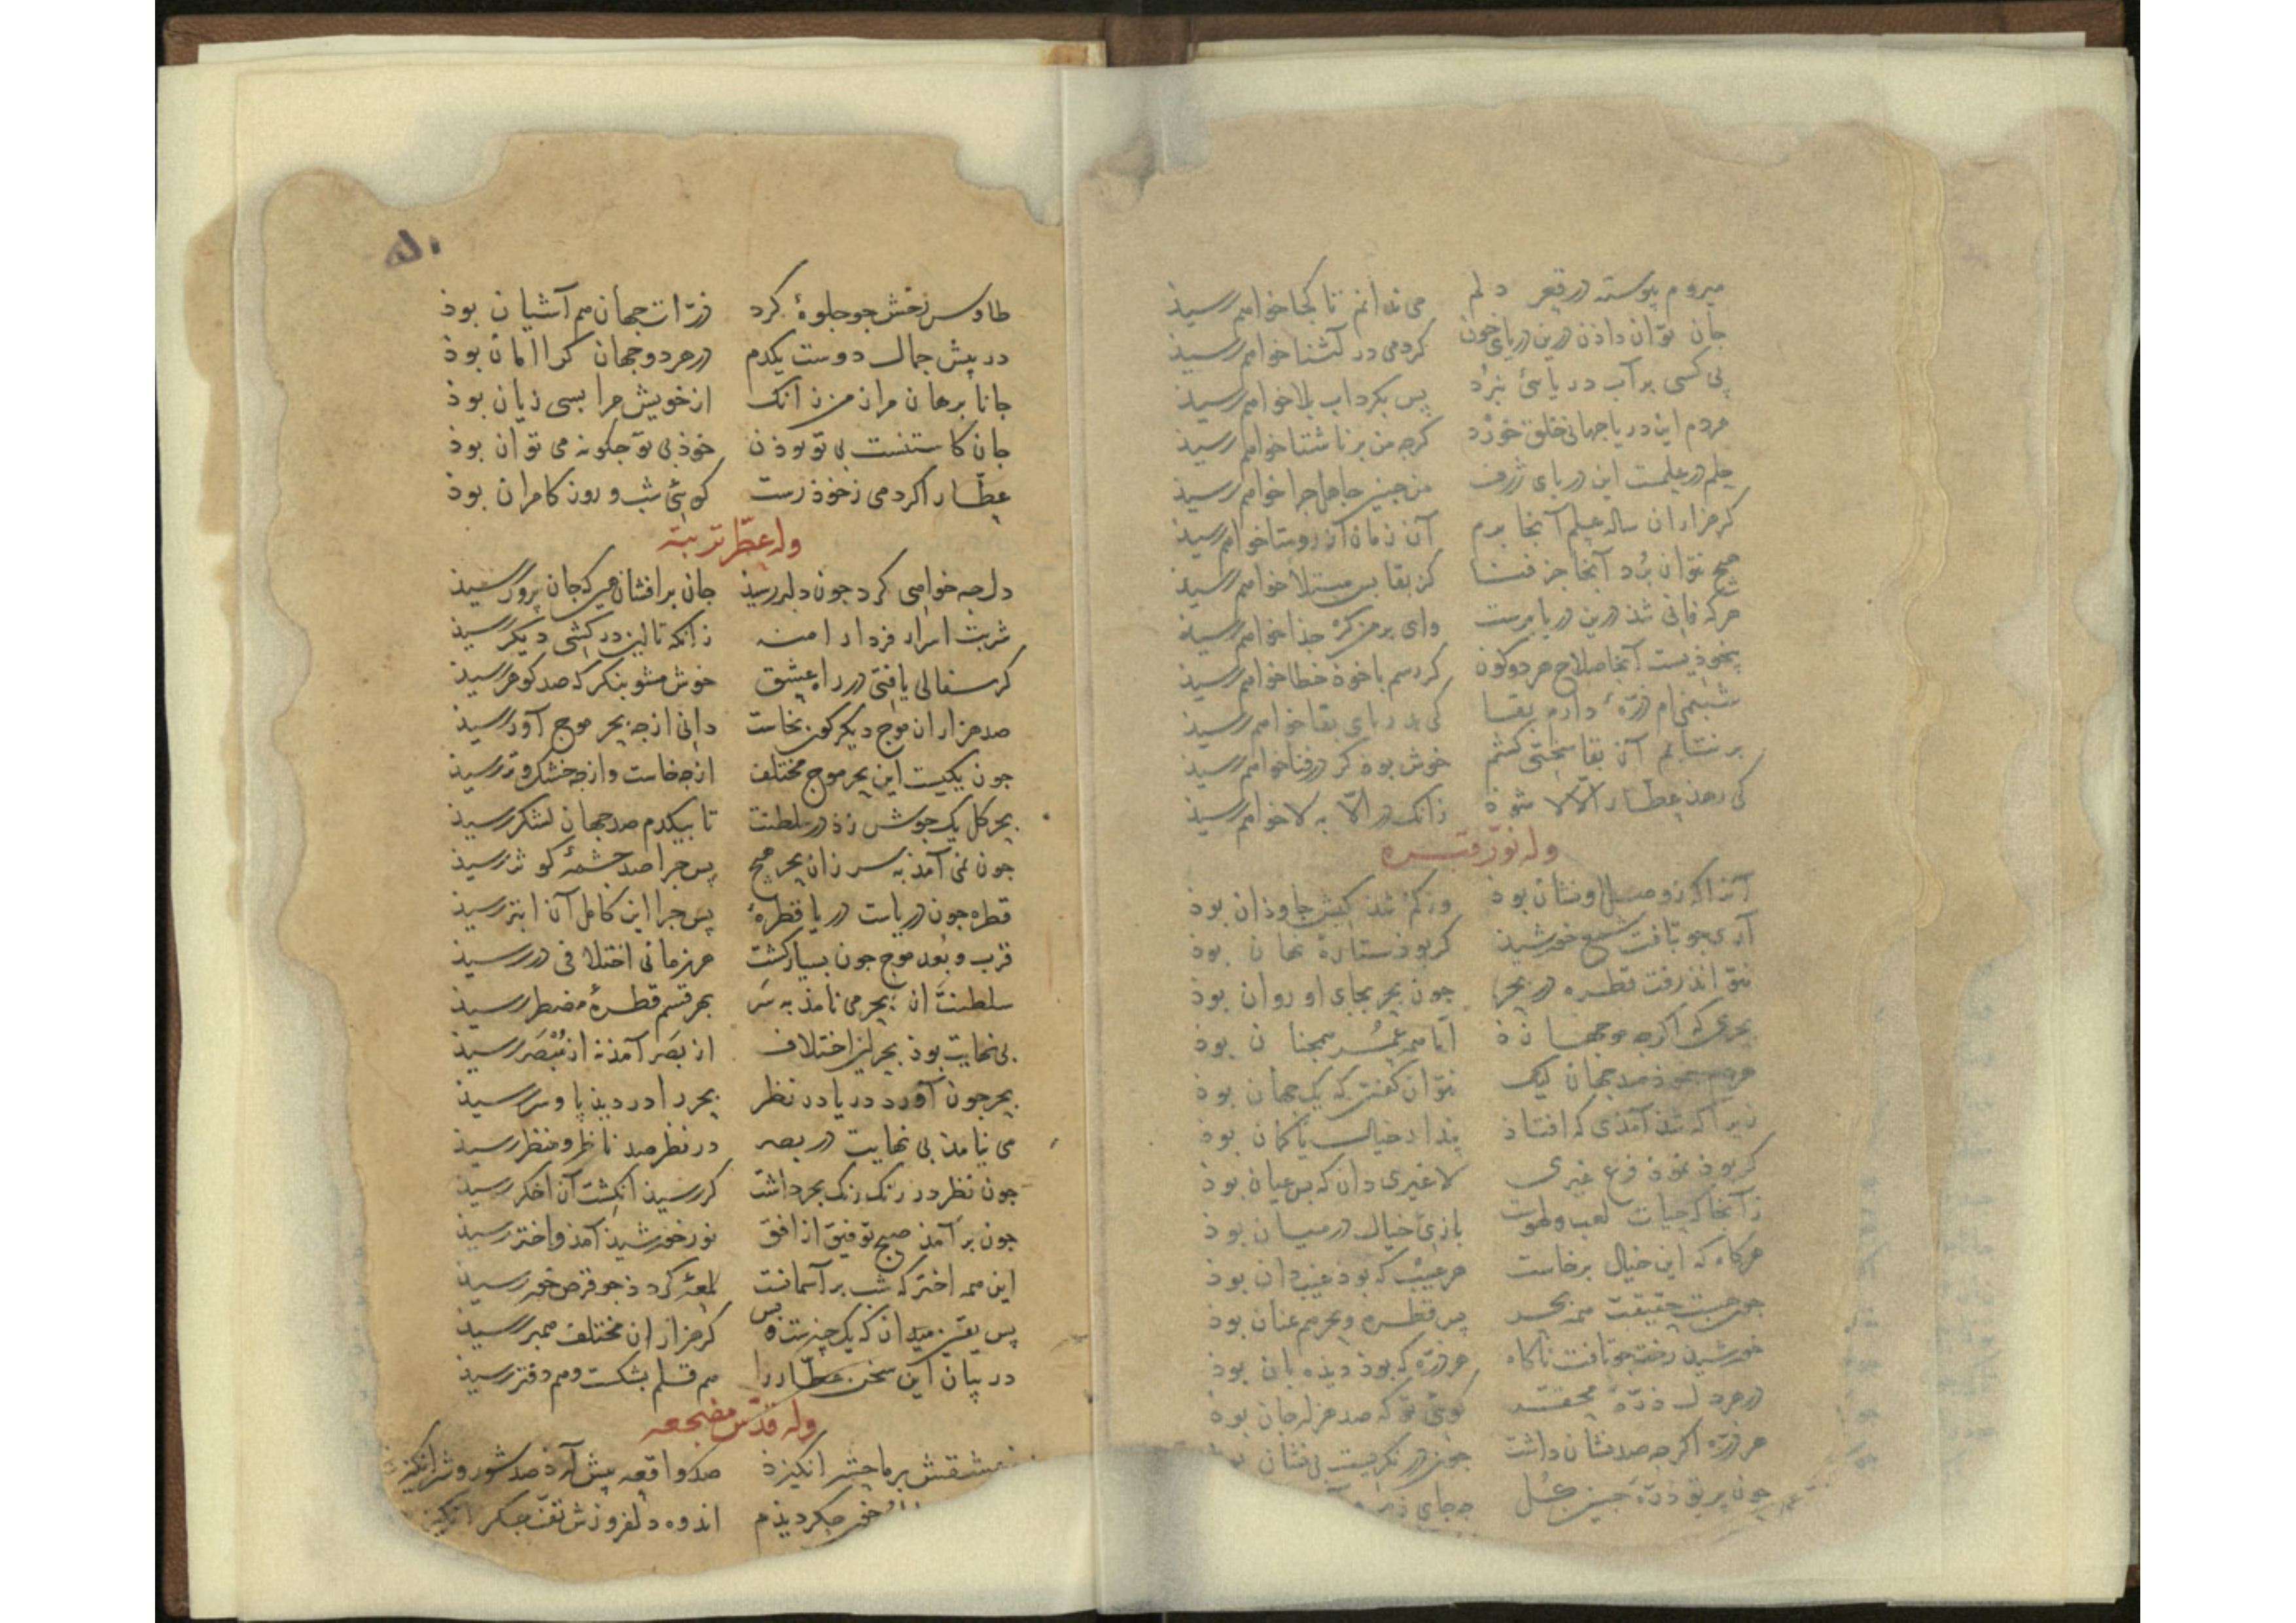 میروم پیوسته در قعر دلم می ندانم تا کجا خواهم رسیذ
جان توان داذن درین دریای خون کردمی در آشنا خواهم رسیذ
پی کسی بر آب دریا سئ نبرد پس بکرداب بلا خواهم رسیذ
مردم این دریا جهانی خلق خورد کرجه من بر ناشتا خواهم رسیذ
علم در علمست این دریای ژرف من جنین جاهل جرا خواهم رسیذ
کر هزاران ساله علم آنجا برم آن زمان از روستا خواهم رسیذ
هیچ نتوان برد آنجا جز فنا کز بقا بس مبتلا خواهم رسیذ
هرکه فانی شذ درین دریا برست وای بر من کر جذا خواهم رسیذ
بیخوذیست آنجا صلاح هر دو کون کر رسم با خوذ خطا خواهم رسیذ
شبنمی ام ذرّهٔ دارم بقا کی بدریای بقا خواهم رسیذ
بر نتابم آن بقا سختی کشم خوش بوذ کر در فنا خواهم رسیذ
کی رهذ عطار الاّلا شوذ زانک در الاّ به لا خواهم رسیذ
وله نوّر قبره
آنرا که ز وصل او نشان بوذ وز کم شذکیش جاوذان بوذ
آری جو بتافت شمع خورشیذ کر بوذ ستارهٔ نهان بوذ
نتواند رفت قطره در بحر جون بحر بجای او روان بوذ
بحری که اکرجه موجها زذ اما همه عمر همجنان بوذ
هر صد جهان لیک نتوان کفت که یک جهان بوذ
زیرا که شذ آمذی که افتاذ بندار خیال یا کمان بوذ
کر بوذ نموذ فرع غیری لا غیری دان که بس عیان بوذ
زآنجا که حیات لعب و لهوست بازی خیال در میان بوذ
هرکاه که این خیال برخاست هر عیب که بوذ غیب دان بوذ
جون هست حقیقت همه بحر پس قطره و بحر هم عنان بوذ
خورشیذ رخت جو تافت ناکاه هر ذرّه که بوذ دیذه بان بوذ
در هر دل ذرّهٔ محقّر کوئی تو که صد هزار جان بوذ
هر ذرّه اکرجه صد نشان داشت جون در نکریست بی نشان بوذ
جون پرتو ذرّهٔ جنین جه جای
۵۱
طاوس رخش جو جلوهٔ کرد ذرّات جهان هم آشیان بوذ
در پیش جمال دوست یکدم در هر دو جهان کرا امان بوذ
جانا برهان مرا ز من زانک از خویش مرا بسی زیان بوذ
جان کاستنست بی تو بوذن خوذ بی تو جکونه می توان بوذ
عطّار اکر دمی ز خوذ رست کوئی شب و روز کامران بوذ
وله عطّر تربته
دل جه خواهی کرد جون دلبر رسیذ جان بر افشان هین که جان پرور رسیذ
شربت اسرار فردا را منه زانکه تا این در کشی دیکر رسیذ
کر سفالی یافتی در راه عشق خوش مشو بنکر که صد کوهر رسیذ
صد هزاران موج دیکر کون بخاست دانی از جه بحر موج آور رسیذ
جون یکیست این بحر موج مختلف از جه خاست و از جه خشک و تر رسیذ
بحر کل یک جوش زذ در سلطنت تا بیکدم صد جهان لشکر رسیذ
جون نمی آمذ به سر زان بحر هیج پس جرا صد جشمهٔ کوثر رسیذ
قطره جون دریاست دریا قطرهٔ پس جرا این کامل آن ابتر رسیذ
قرب و بُعد موج جون بسیار کشت هر زمانی اختلافی در رسیذ
سلطنت آن بحر می نامذ به سَر بهر قسم قطرهٔ مضطر رسیذ
بی نهایت بوذ بحر این اختلاف از بَصَر آمذ نه از مُبْصَر رسیذ
بحر جون آورد دریا در نظر بحر را در دیذ پا و سر رسیذ
می نیامذ بی نهایت در بصر در نظر صد ناظر و منظر رسیذ
جون نظر در رنک رنک بحر داشت کر رسیذ انکشت آن اخکر رسیذ
جون برآمذ صبح توفیق از افق نور خورشیذ آمذ و اختر رسیذ
این همه اختر که شب بر آسمانست لمعهٔ کرد ذ جو قرص خور رسیذ
پس یقین میدان که یک چیزست و بس کر هزاران مختلف همبر رسیذ
در بیان این سخن عطّار را هم قلم بشکست و هم دفتر رسیذ
وله قدّس مضجعه
عشقش بر ما حشر انکیزذ صد واقعه پیش آرذ صد شور و شر انکیزذ
جکر دیذم اندوه دلفروزش تفّ جکر انکیزذ